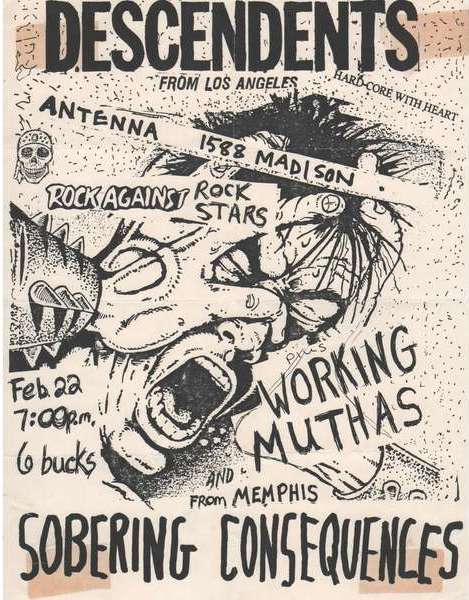 DESCENDENTS
FROM LOS ANGELES
HARD-CORE WITH HEART
ANTENNA 1588 MADISON
ROCK AGAINST ROCK
STARS
Feb. 22
7:00p.m.
6 bucks
plus
WORKING
MUTHAS
AND
FROM MEMPHIS
SOBERING CONSEQUENCES